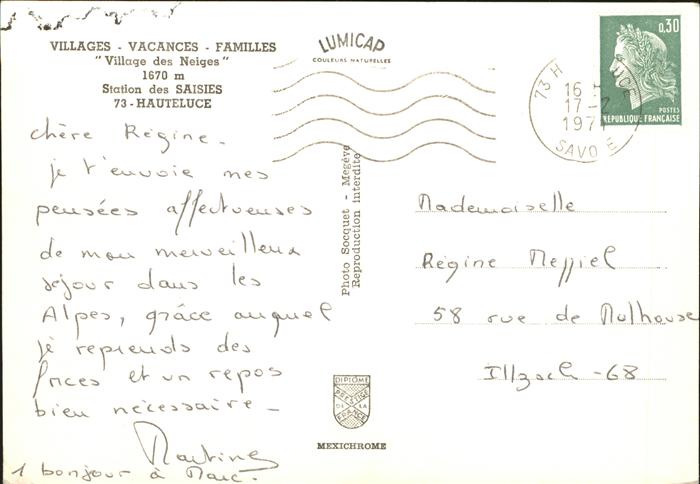 VILLAGES - VACANCES - FAMILLES
"Village des Neiges"
1670 m
Station des SAISIES
73 - HAUTELUCE
LUMICAP
COULEURS NATURELLES
0,30
POSTES
REPUBLIQUE FRANÇAISE
73 H
16 H
17-2
1971
SAVOIE
chère Régine.
je t'envoie mes
pensées affectueuses
de mon merveilleux
séjour dans les
Alpes, grâce auquel
je reprends des
forces et un repos
bien nécessaire -
Martine
1 bonjour à Marc.
Photo Socquet - Megève
Reproduction Interdite
Mademoiselle
Régine Meppiel
58 rue de Mulhouse
Illzach - 68
DIPLOME
PRESTIGE
DE LA
FRANCE
MEXICHROME